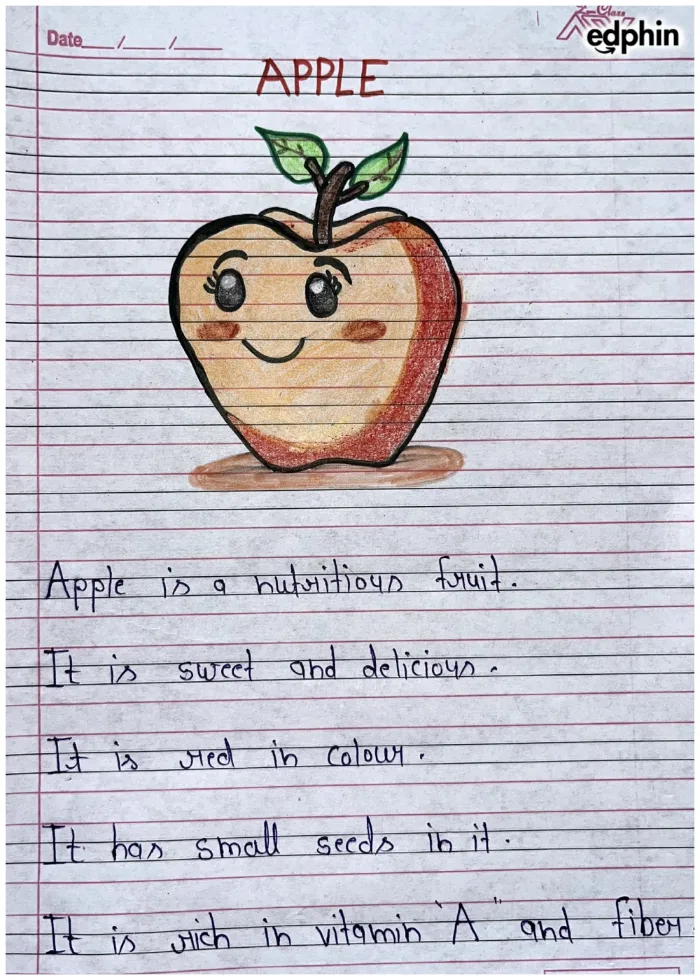 Date__/__/__
edphin
APPLE
Apple is a nutritious fruit.
It is sweet and delicious.
It is red in colour.
It has small seeds in it.
It is rich in vitamin "A" and fiber